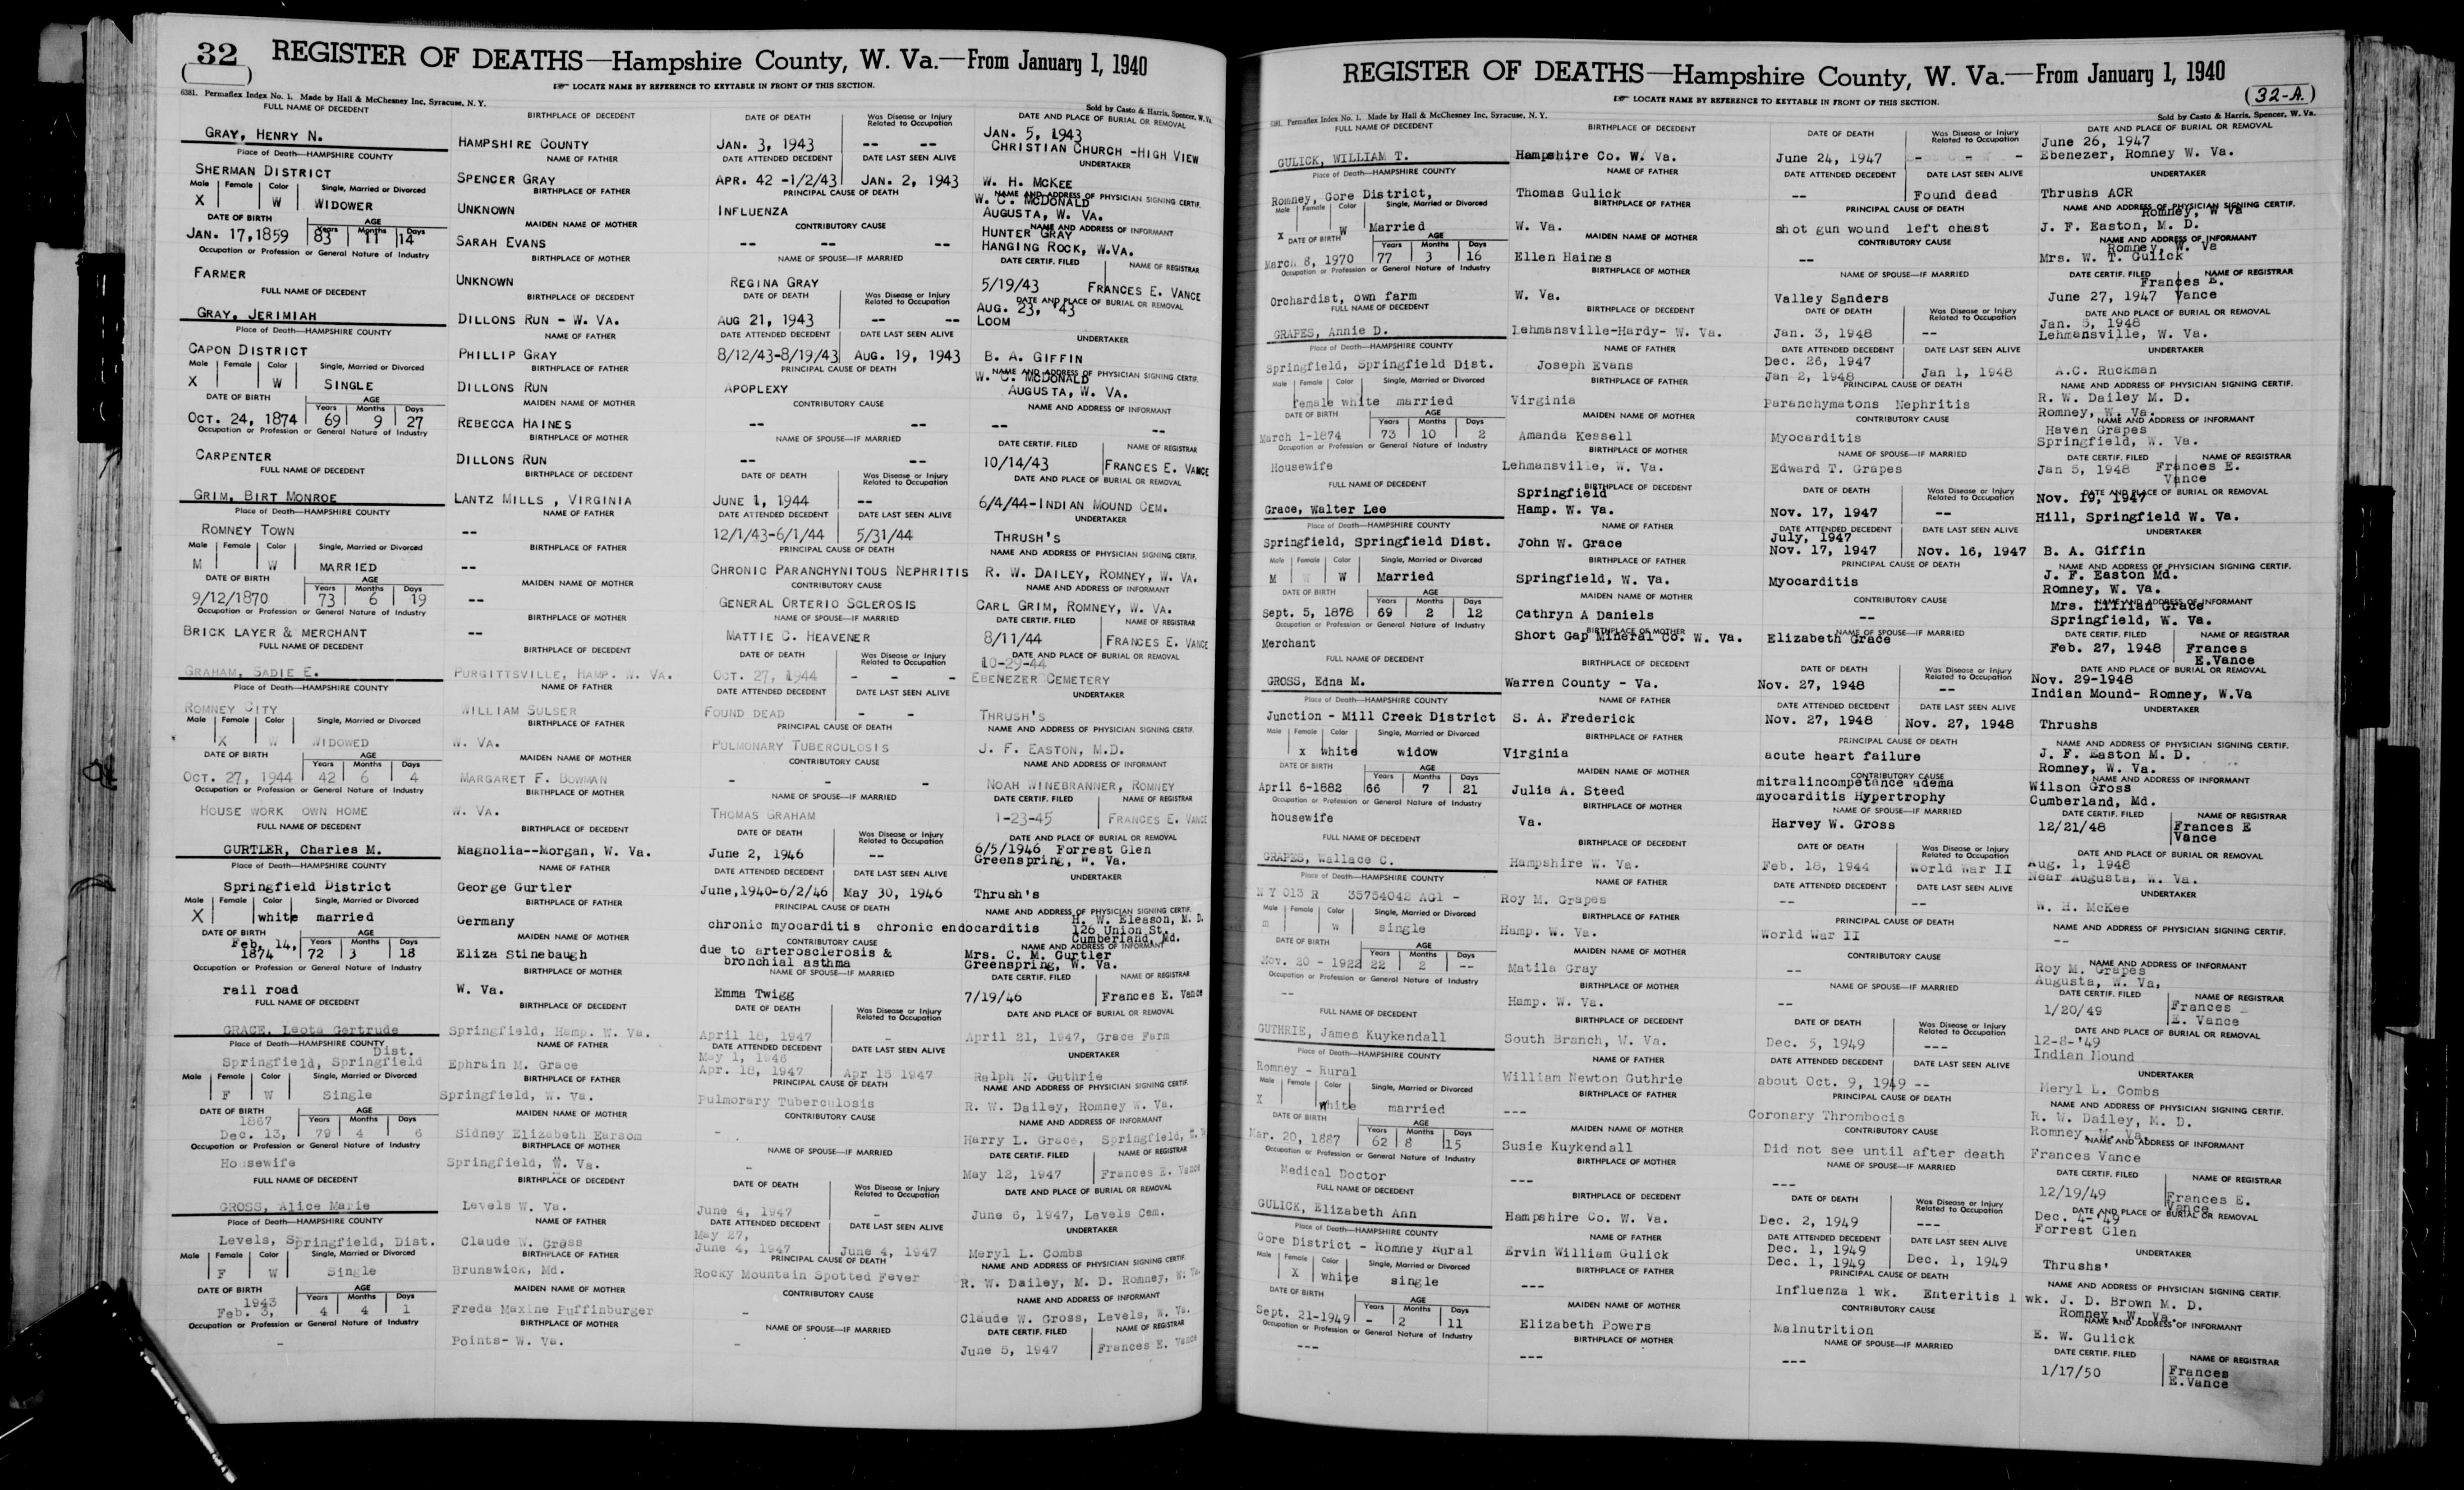 32
REGISTER OF DEATHS—Hampshire County, W. Va.—From January 1, 1940
LOCATE NAME BY REFERENCE TO KEYTABLE IN FRONT OF THIS SECTION.
6381. Permaflex Index No. 1. Made by Hall & McChesney Inc. Syracuse, N. Y.
Sold by Casto & Harris, Spencer, W. Va.
FULL NAME OF DECEDENT BIRTHPLACE OF DECEDENT DATE OF DEATH Was Disease or Injury Related to Occupation DATE AND PLACE OF BURIAL OR REMOVAL
GRAY, HENRY N. HAMPSHIRE COUNTY JAN. 3, 1943 -- -- JAN. 5, 1943 CHRISTIAN CHURCH -HIGH VIEW
Place of Death—HAMPSHIRE COUNTY NAME OF FATHER DATE ATTENDED DECEDENT DATE LAST SEEN ALIVE UNDERTAKER
SHERMAN DISTRICT SPENCER GRAY APR. 42 -1/2/43 JAN. 2, 1943 W. H. MCKEE
Male Female Color Single, Married or Divorced BIRTHPLACE OF FATHER PRINCIPAL CAUSE OF DEATH NAME AND ADDRESS OF PHYSICIAN SIGNING CERTIF.
X W WIDOWER UNKNOWN INFLUENZA W. C. MCDONALD AUGUSTA, W. VA.
DATE OF BIRTH AGE Years Months Days MAIDEN NAME OF MOTHER CONTRIBUTORY CAUSE NAME AND ADDRESS OF INFORMANT
JAN. 17,1859 83 11 14 SARAH EVANS -- -- -- HUNTER GRAY HANGING ROCK, W.VA.
Occupation or Profession or General Nature of Industry BIRTHPLACE OF MOTHER NAME OF SPOUSE—IF MARRIED DATE CERTIF. FILED NAME OF REGISTRAR
FARMER UNKNOWN REGINA GRAY 5/19/43 FRANCES E. VANCE
FULL NAME OF DECEDENT BIRTHPLACE OF DECEDENT DATE OF DEATH Was Disease or Injury Related to Occupation DATE AND PLACE OF BURIAL OR REMOVAL
GRAY, JERIMIAH DILLONS RUN - W. VA. AUG 21, 1943 -- -- AUG. 23, '43 LOOM
Place of Death—HAMPSHIRE COUNTY NAME OF FATHER DATE ATTENDED DECEDENT DATE LAST SEEN ALIVE UNDERTAKER
CAPON DISTRICT PHILLIP GRAY 8/12/43-8/19/43 AUG. 19, 1943 B. A. GIFFIN
Male Female Color Single, Married or Divorced BIRTHPLACE OF FATHER PRINCIPAL CAUSE OF DEATH NAME AND ADDRESS OF PHYSICIAN SIGNING CERTIF.
X W SINGLE DILLONS RUN APOPLEXY W. C. MCDONALD AUGUSTA, W. VA.
DATE OF BIRTH AGE Years Months Days MAIDEN NAME OF MOTHER CONTRIBUTORY CAUSE NAME AND ADDRESS OF INFORMANT
OCT. 24, 1874 69 9 27 REBECCA HAINES -- -- -- --
Occupation or Profession or General Nature of Industry BIRTHPLACE OF MOTHER NAME OF SPOUSE—IF MARRIED DATE CERTIF. FILED NAME OF REGISTRAR
CARPENTER DILLONS RUN -- -- 10/14/43 FRANCES E. VANCE
FULL NAME OF DECEDENT BIRTHPLACE OF DECEDENT DATE OF DEATH Was Disease or Injury Related to Occupation DATE AND PLACE OF BURIAL OR REMOVAL
GRIM, BIRT MONROE LANTZ MILLS , VIRGINIA JUNE 1, 1944 -- 6/4/44-INDIAN MOUND CEM.
Place of Death—HAMPSHIRE COUNTY NAME OF FATHER DATE ATTENDED DECEDENT DATE LAST SEEN ALIVE UNDERTAKER
ROMNEY TOWN -- 12/1/43-6/1/44 5/31/44 THRUSH'S
Male Female Color Single, Married or Divorced BIRTHPLACE OF FATHER PRINCIPAL CAUSE OF DEATH NAME AND ADDRESS OF PHYSICIAN SIGNING CERTIF.
M W MARRIED -- CHRONIC PARANCHYNITOUS NEPHRITIS R. W. DAILEY, ROMNEY, W. VA.
DATE OF BIRTH AGE Years Months Days MAIDEN NAME OF MOTHER CONTRIBUTORY CAUSE NAME AND ADDRESS OF INFORMANT
9/12/1870 73 6 19 -- GENERAL ORTERIO SCLEROSIS CARL GRIM, ROMNEY, W. VA.
Occupation or Profession or General Nature of Industry BIRTHPLACE OF MOTHER NAME OF SPOUSE—IF MARRIED DATE CERTIF. FILED NAME OF REGISTRAR
BRICK LAYER & MERCHANT -- MATTIE C. HEAVENER 8/11/44 FRANCES E. VANCE
FULL NAME OF DECEDENT BIRTHPLACE OF DECEDENT DATE OF DEATH Was Disease or Injury Related to Occupation DATE AND PLACE OF BURIAL OR REMOVAL
GRAHAM, SADIE E. PURGITTSVILLE, HAMP. W. VA. OCT. 27, 1944 - - - 10-29-44 EBENEZER CEMETERY
Place of Death—HAMPSHIRE COUNTY NAME OF FATHER DATE ATTENDED DECEDENT DATE LAST SEEN ALIVE UNDERTAKER
ROMNEY CITY WILLIAM SULSER FOUND DEAD - - THRUSH'S
Male Female Color Single, Married or Divorced BIRTHPLACE OF FATHER PRINCIPAL CAUSE OF DEATH NAME AND ADDRESS OF PHYSICIAN SIGNING CERTIF.
X W WIDOWED W. VA. PULMONARY TUBERCULOSIS J. F. EASTON, M.D.
DATE OF BIRTH AGE Years Months Days MAIDEN NAME OF MOTHER CONTRIBUTORY CAUSE NAME AND ADDRESS OF INFORMANT
OCT. 27, 1944 42 6 4 MARGARET F. BOWMAN - - - NOAH WINEBRANNER, ROMNEY
Occupation or Profession or General Nature of Industry BIRTHPLACE OF MOTHER NAME OF SPOUSE—IF MARRIED DATE CERTIF. FILED NAME OF REGISTRAR
HOUSE WORK OWN HOME W. VA. THOMAS GRAHAM 1-23-45 FRANCES E. VANCE
FULL NAME OF DECEDENT BIRTHPLACE OF DECEDENT DATE OF DEATH Was Disease or Injury Related to Occupation DATE AND PLACE OF BURIAL OR REMOVAL
GURTLER, Charles M. Magnolia--Morgan, W. Va. June 2, 1946 -- 6/5/1946 Forrest Glen Greenspring, W. Va.
Place of Death—HAMPSHIRE COUNTY NAME OF FATHER DATE ATTENDED DECEDENT DATE LAST SEEN ALIVE UNDERTAKER
Springfield District George Gurtler June,1940-6/2/46 May 30, 1946 Thrush's
Male Female Color Single, Married or Divorced BIRTHPLACE OF FATHER PRINCIPAL CAUSE OF DEATH NAME AND ADDRESS OF PHYSICIAN SIGNING CERTIF.
X white married Germany chronic myocarditis chronic endocarditis H. W. Eleason, M. D. 126 Union St. Cumberland, Md.
DATE OF BIRTH AGE Years Months Days MAIDEN NAME OF MOTHER CONTRIBUTORY CAUSE NAME AND ADDRESS OF INFORMANT
Feb. 14, 1874 72 3 18 Eliza Stinebaugh due to arterosclerosis & bronchial asthma Mrs. C. M. Gurtler Greenspring, W. Va.
Occupation or Profession or General Nature of Industry BIRTHPLACE OF MOTHER NAME OF SPOUSE—IF MARRIED DATE CERTIF. FILED NAME OF REGISTRAR
rail road W. Va. Emma Twigg 7/19/46 Frances E. Vance
FULL NAME OF DECEDENT BIRTHPLACE OF DECEDENT DATE OF DEATH Was Disease or Injury Related to Occupation DATE AND PLACE OF BURIAL OR REMOVAL
GRACE, Leota Gertrude Springfield, Hamp. W. Va. April 18, 1947 - April 21, 1947, Grace Farm
Place of Death—HAMPSHIRE COUNTY NAME OF FATHER DATE ATTENDED DECEDENT DATE LAST SEEN ALIVE UNDERTAKER
Springfield, Springfield Dist. Ephrain M. Grace May 1, 1946 Apr. 18, 1947 Apr 18 1947 Ralph N. Guthrie
Male Female Color Single, Married or Divorced BIRTHPLACE OF FATHER PRINCIPAL CAUSE OF DEATH NAME AND ADDRESS OF PHYSICIAN SIGNING CERTIF.
F W Single Springfield, W. Va. Pulmorary Tuberculosis R. W. Dailey, Romney W. Va.
DATE OF BIRTH AGE Years Months Days MAIDEN NAME OF MOTHER CONTRIBUTORY CAUSE NAME AND ADDRESS OF INFORMANT
1867 Dec. 13, 79 4 6 Sidney Elizabeth Earsom - Harry L. Grace, Springfield, W. V
Occupation or Profession or General Nature of Industry BIRTHPLACE OF MOTHER NAME OF SPOUSE—IF MARRIED DATE CERTIF. FILED NAME OF REGISTRAR
Housewife Springfield, W. Va. - May 12, 1947 Frances E. Vance
FULL NAME OF DECEDENT BIRTHPLACE OF DECEDENT DATE OF DEATH Was Disease or Injury Related to Occupation DATE AND PLACE OF BURIAL OR REMOVAL
GROSS, Alice Marie Levels W. Va. June 4, 1947 - June 6, 1947, Levels Cem.
Place of Death—HAMPSHIRE COUNTY NAME OF FATHER DATE ATTENDED DECEDENT DATE LAST SEEN ALIVE UNDERTAKER
Levels, Springfield, Dist. Claude W. Gross May 27, June 4, 1947 June 4, 1947 Meryl L. Combs
Male Female Color Single, Married or Divorced BIRTHPLACE OF FATHER PRINCIPAL CAUSE OF DEATH NAME AND ADDRESS OF PHYSICIAN SIGNING CERTIF.
F W Single Brunswick, Md. Rocky Mountain Spotted Fever R. W. Dailey, M. D. Romney, W. Va.
DATE OF BIRTH AGE Years Months Days MAIDEN NAME OF MOTHER CONTRIBUTORY CAUSE NAME AND ADDRESS OF INFORMANT
1943 Feb. 3, 4 4 1 Freda Maxine Puffinburger - Claude W. Gross, Levels, W. Va.
Occupation or Profession or General Nature of Industry BIRTHPLACE OF MOTHER NAME OF SPOUSE—IF MARRIED DATE CERTIF. FILED NAME OF REGISTRAR
- Points- W. Va. - June 5, 1947 Frances E. Vance
REGISTER OF DEATHS—Hampshire County, W. Va.—From January 1, 1940
(32-A.)
LOCATE NAME BY REFERENCE TO KEYTABLE IN FRONT OF THIS SECTION.
6381. Permaflex Index No. 1. Made by Hall & McChesney Inc, Syracuse, N. Y.
Sold by Casto & Harris, Spencer, W. Va.
FULL NAME OF DECEDENT BIRTHPLACE OF DECEDENT DATE OF DEATH Was Disease or Injury Related to Occupation DATE AND PLACE OF BURIAL OR REMOVAL
GULICK, WILLIAM T. Hampshire Co. W. Va. June 24, 1947 - - - June 26, 1947 Ebenezer, Romney W. Va.
Place of Death—HAMPSHIRE COUNTY NAME OF FATHER DATE ATTENDED DECEDENT DATE LAST SEEN ALIVE UNDERTAKER
Romney, Gore District, Thomas Gulick -- Found dead Thrushs ACR
Male Female Color Single, Married or Divorced BIRTHPLACE OF FATHER PRINCIPAL CAUSE OF DEATH NAME AND ADDRESS OF PHYSICIAN SIGNING CERTIF.
X W Married W. Va. shot gun wound left chest Romney, W Va J. F. Easton, M. D.
DATE OF BIRTH AGE Years Months Days MAIDEN NAME OF MOTHER CONTRIBUTORY CAUSE NAME AND ADDRESS OF INFORMANT
March 8, 1970 77 3 16 Ellen Haines -- Romney, W. Va Mrs. W. T. Gulick
Occupation or Profession or General Nature of Industry BIRTHPLACE OF MOTHER NAME OF SPOUSE—IF MARRIED DATE CERTIF. FILED NAME OF REGISTRAR
Orchardist, own farm W. Va. Valley Sanders June 27, 1947 Frances E. Vance
FULL NAME OF DECEDENT BIRTHPLACE OF DECEDENT DATE OF DEATH Was Disease or Injury Related to Occupation DATE AND PLACE OF BURIAL OR REMOVAL
GRAPES, Annie D. Lehmansville-Hardy- W. Va. Jan. 3, 1948 -- Jan. 5, 1948 Lehmansville, W. Va.
Place of Death—HAMPSHIRE COUNTY NAME OF FATHER DATE ATTENDED DECEDENT DATE LAST SEEN ALIVE UNDERTAKER
Springfield, Springfield Dist. Joseph Evans Dec. 26, 1947 Jan 2, 1948 Jan 1, 1948 A.C. Ruckman
Male Female Color Single, Married or Divorced BIRTHPLACE OF FATHER PRINCIPAL CAUSE OF DEATH NAME AND ADDRESS OF PHYSICIAN SIGNING CERTIF.
Female white married Virginia Paranchymatons Nephritis R. W. Dailey M. D. Romney, W. Va.
DATE OF BIRTH AGE Years Months Days MAIDEN NAME OF MOTHER CONTRIBUTORY CAUSE NAME AND ADDRESS OF INFORMANT
March 1-1874 73 10 2 Amanda Kessell Myocarditis Haven Grapes Springfield, W. Va.
Occupation or Profession or General Nature of Industry BIRTHPLACE OF MOTHER NAME OF SPOUSE—IF MARRIED DATE CERTIF. FILED NAME OF REGISTRAR
Housewife Lehmansville, W. Va. Edward T. Grapes Jan 5, 1948 Frances E. Vance
FULL NAME OF DECEDENT BIRTHPLACE OF DECEDENT DATE OF DEATH Was Disease or Injury Related to Occupation DATE AND PLACE OF BURIAL OR REMOVAL
Grace, Walter Lee Springfield Hamp. W. Va. Nov. 17, 1947 -- Nov. 19, 1947 Hill, Springfield W. Va.
Place of Death—HAMPSHIRE COUNTY NAME OF FATHER DATE ATTENDED DECEDENT DATE LAST SEEN ALIVE UNDERTAKER
Springfield, Springfield Dist. John W. Grace July, 1947 Nov. 17, 1947 Nov. 16, 1947 B. A. Giffin
Male Female Color Single, Married or Divorced BIRTHPLACE OF FATHER PRINCIPAL CAUSE OF DEATH NAME AND ADDRESS OF PHYSICIAN SIGNING CERTIF.
M W Married Springfield, W. Va. Myocarditis J. F. Easton Md. Romney, W. Va.
DATE OF BIRTH AGE Years Months Days MAIDEN NAME OF MOTHER CONTRIBUTORY CAUSE NAME AND ADDRESS OF INFORMANT
Sept. 5, 1878 69 2 12 Cathryn A Daniels -- Mrs. Lillian Grace Springfield, W. Va.
Occupation or Profession or General Nature of Industry BIRTHPLACE OF MOTHER NAME OF SPOUSE—IF MARRIED DATE CERTIF. FILED NAME OF REGISTRAR
Merchant Short Gap Mineral Co. W. Va. Elizabeth Grace Feb. 27, 1948 Frances E.Vance
FULL NAME OF DECEDENT BIRTHPLACE OF DECEDENT DATE OF DEATH Was Disease or Injury Related to Occupation DATE AND PLACE OF BURIAL OR REMOVAL
GROSS, Edna M. Warren County - Va. Nov. 27, 1948 -- Nov. 29-1948 Indian Mound- Romney, W.Va
Place of Death—HAMPSHIRE COUNTY NAME OF FATHER DATE ATTENDED DECEDENT DATE LAST SEEN ALIVE UNDERTAKER
Junction - Mill Creek District S. A. Frederick Nov. 27, 1948 Nov. 27, 1948 Thrushs
Male Female Color Single, Married or Divorced BIRTHPLACE OF FATHER PRINCIPAL CAUSE OF DEATH NAME AND ADDRESS OF PHYSICIAN SIGNING CERTIF.
X white widow Virginia acute heart failure J. F. Easton M. D. Romney, W. Va.
DATE OF BIRTH AGE Years Months Days MAIDEN NAME OF MOTHER CONTRIBUTORY CAUSE NAME AND ADDRESS OF INFORMANT
April 6-1882 66 7 21 Julia A. Steed mitralincompetance adema myocarditis Hypertrophy Wilson Gross Cumberland, Md.
Occupation or Profession or General Nature of Industry BIRTHPLACE OF MOTHER NAME OF SPOUSE—IF MARRIED DATE CERTIF. FILED NAME OF REGISTRAR
housewife Va. Harvey W. Gross 12/21/48 Frances E Vance
FULL NAME OF DECEDENT BIRTHPLACE OF DECEDENT DATE OF DEATH Was Disease or Injury Related to Occupation DATE AND PLACE OF BURIAL OR REMOVAL
GRAPES, Wallace C. Hampshire W. Va. Feb. 18, 1944 World War II Aug. 1, 1948 Near Augusta, W. Va.
Place of Death—HAMPSHIRE COUNTY NAME OF FATHER DATE ATTENDED DECEDENT DATE LAST SEEN ALIVE UNDERTAKER
N Y 013 R 35754042 AG1 - Roy M. Grapes -- -- W. H. McKee
Male Female Color Single, Married or Divorced BIRTHPLACE OF FATHER PRINCIPAL CAUSE OF DEATH NAME AND ADDRESS OF PHYSICIAN SIGNING CERTIF.
m w single Hamp. W. Va. World War II --
DATE OF BIRTH AGE Years Months Days MAIDEN NAME OF MOTHER CONTRIBUTORY CAUSE NAME AND ADDRESS OF INFORMANT
Nov. 20 - 1922 22 2 -- Matila Gray -- Roy M. Grapes Augusta, W. Va,
Occupation or Profession or General Nature of Industry BIRTHPLACE OF MOTHER NAME OF SPOUSE—IF MARRIED DATE CERTIF. FILED NAME OF REGISTRAR
-- Hamp. W. Va. -- 1/20/49 Frances E. Vance
FULL NAME OF DECEDENT BIRTHPLACE OF DECEDENT DATE OF DEATH Was Disease or Injury Related to Occupation DATE AND PLACE OF BURIAL OR REMOVAL
GUTHRIE, James Kuykendall South Branch, W. Va. Dec. 5, 1949 --- 12-8-'49 Indian Mound
Place of Death—HAMPSHIRE COUNTY NAME OF FATHER DATE ATTENDED DECEDENT DATE LAST SEEN ALIVE UNDERTAKER
Romney - Rural William Newton Guthrie about Oct. 9, 1949 -- Meryl L. Combs
Male Female Color Single, Married or Divorced BIRTHPLACE OF FATHER PRINCIPAL CAUSE OF DEATH NAME AND ADDRESS OF PHYSICIAN SIGNING CERTIF.
X White married --- Coronary Thrombocis R. W. Dailey, M. D. Romney, W. Va.
DATE OF BIRTH AGE Years Months Days MAIDEN NAME OF MOTHER CONTRIBUTORY CAUSE NAME AND ADDRESS OF INFORMANT
Mar. 20, 1887 62 8 15 Susie Kuykendall Did not see until after death Frances Vance
Occupation or Profession or General Nature of Industry BIRTHPLACE OF MOTHER NAME OF SPOUSE—IF MARRIED DATE CERTIF. FILED NAME OF REGISTRAR
Medical Doctor --- --- 12/19/49 Frances E. Vance
FULL NAME OF DECEDENT BIRTHPLACE OF DECEDENT DATE OF DEATH Was Disease or Injury Related to Occupation DATE AND PLACE OF BURIAL OR REMOVAL
GULICK, Elizabeth Ann Hampshire Co. W. Va. Dec. 2, 1949 --- Dec. 4-'49 Forrest Glen
Place of Death—HAMPSHIRE COUNTY NAME OF FATHER DATE ATTENDED DECEDENT DATE LAST SEEN ALIVE UNDERTAKER
Gore District - Romney Rural Ervin William Gulick Dec. 1, 1949 Dec. 1, 1949 Dec. 1, 1949 Thrushs'
Male Female Color Single, Married or Divorced BIRTHPLACE OF FATHER PRINCIPAL CAUSE OF DEATH NAME AND ADDRESS OF PHYSICIAN SIGNING CERTIF.
X white single --- Influenza 1 wk. Enteritis 1 wk. J. D. Brown M. D. Romney, W. Va.
DATE OF BIRTH AGE Years Months Days MAIDEN NAME OF MOTHER CONTRIBUTORY CAUSE NAME AND ADDRESS OF INFORMANT
Sept. 21-1949 - 2 11 Elizabeth Powers Malnutrition E. W. Gulick
Occupation or Profession or General Nature of Industry BIRTHPLACE OF MOTHER NAME OF SPOUSE—IF MARRIED DATE CERTIF. FILED NAME OF REGISTRAR
--- --- --- 1/17/50 Frances E.Vance